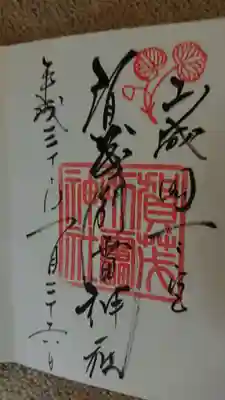 山城国一宮
賀茂別雷神社
平成三十年一月二十六日
賀茂
別雷
神社